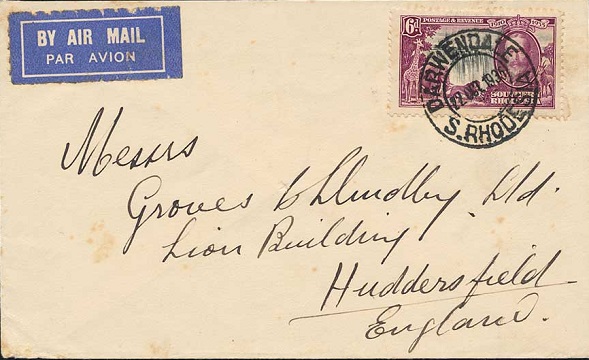 BY AIR MAIL
PAR AVION
6d
POSTAGE & REVENUE
1910 1935
SOUTHERN
RHODESIA
DARWENDALE
S. RHODESIA
Messrs
Groves & Lindley Ltd.
Lion Building
Huddersfield
England.